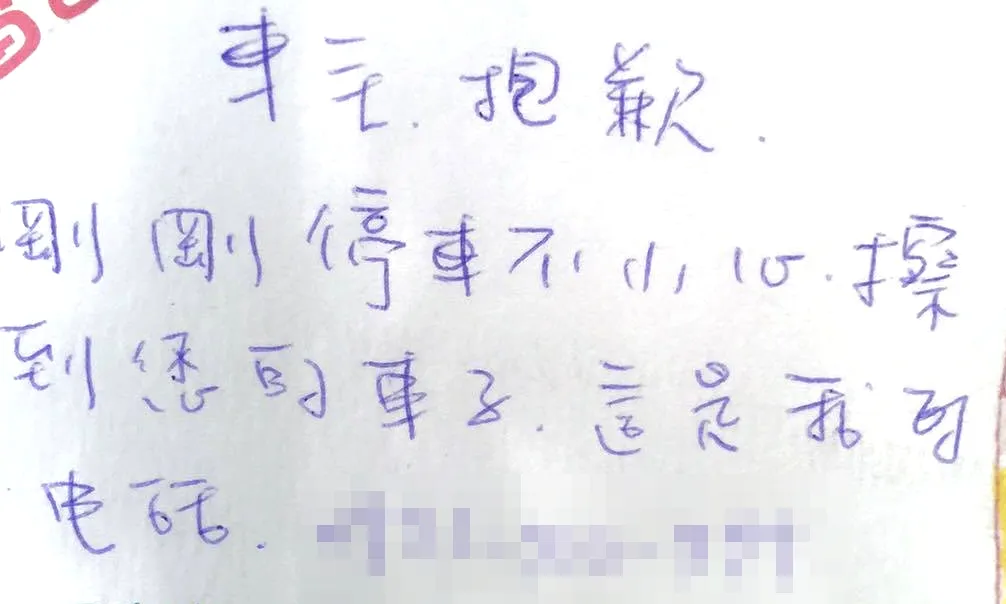 車主.抱歉.
剛剛停車不小心.擦
到您的車子.這是我的
电話.